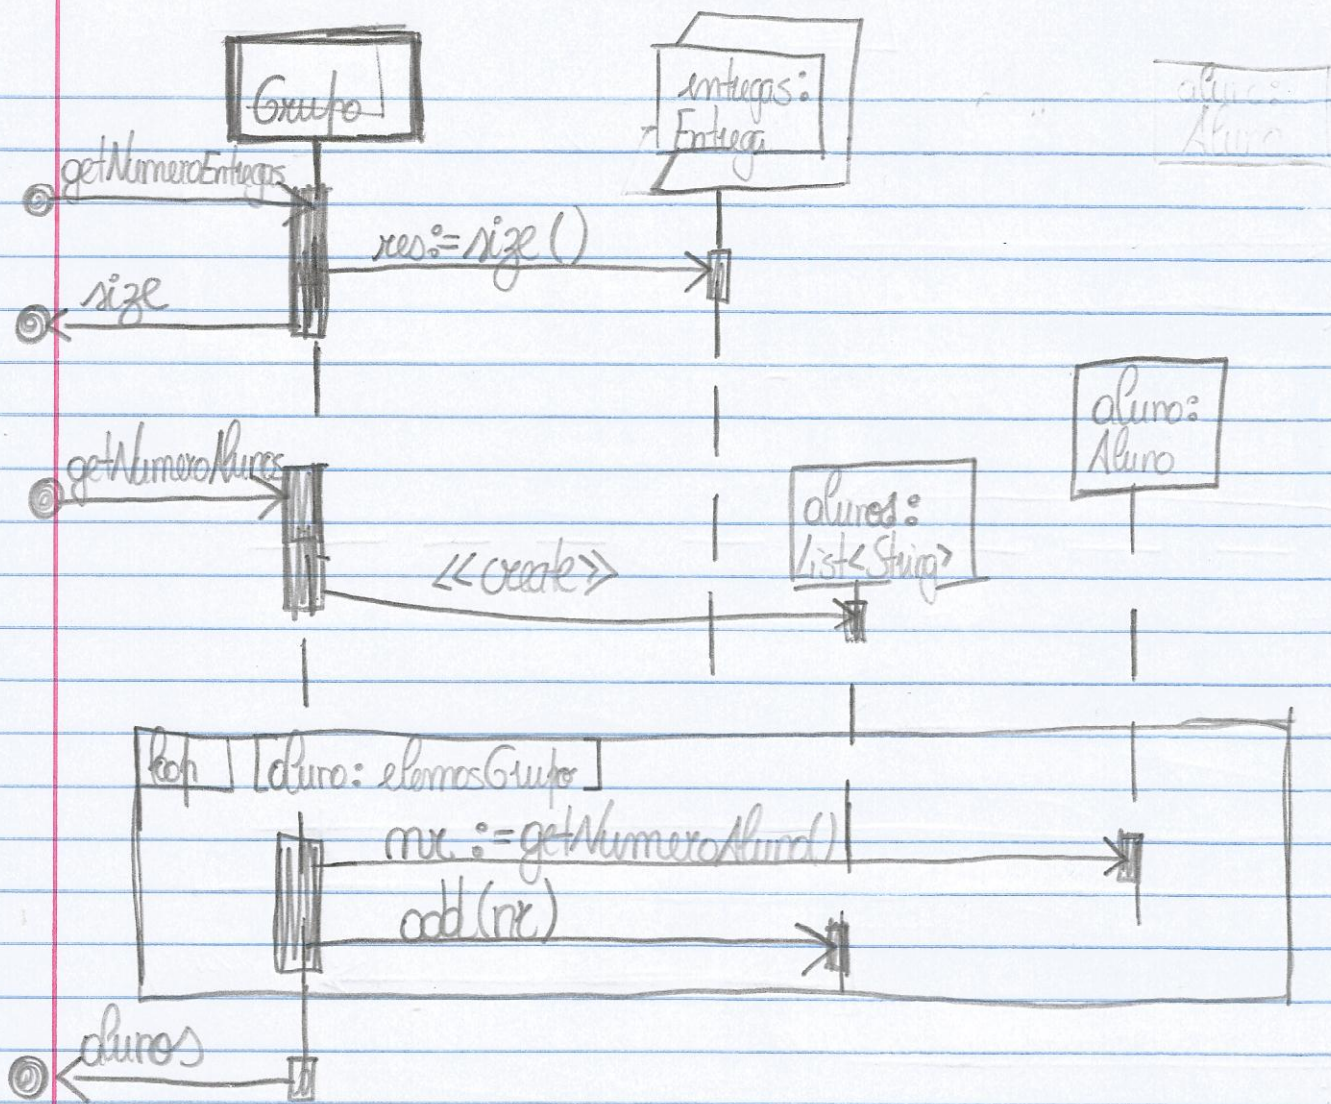 Grupo
entregas:
Entrega
aluno:
Aluno
getNumeroEntregas
res:=size()
size
aluno:
Aluno
getNumeroAlunos
alunos:
List<String>
<<create>>
loop [aluno: elemosGrupo]
nr := getNumeroAluno()
add(nr)
alunos